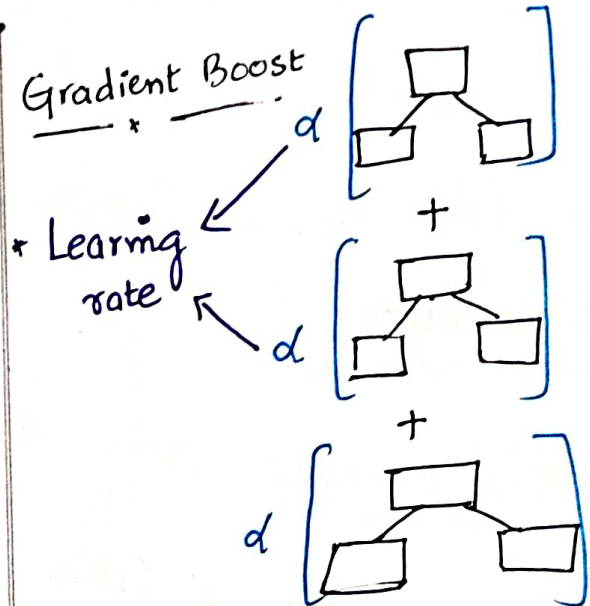 Gradient Boost
α
* Learning
rate
+
α
+
α